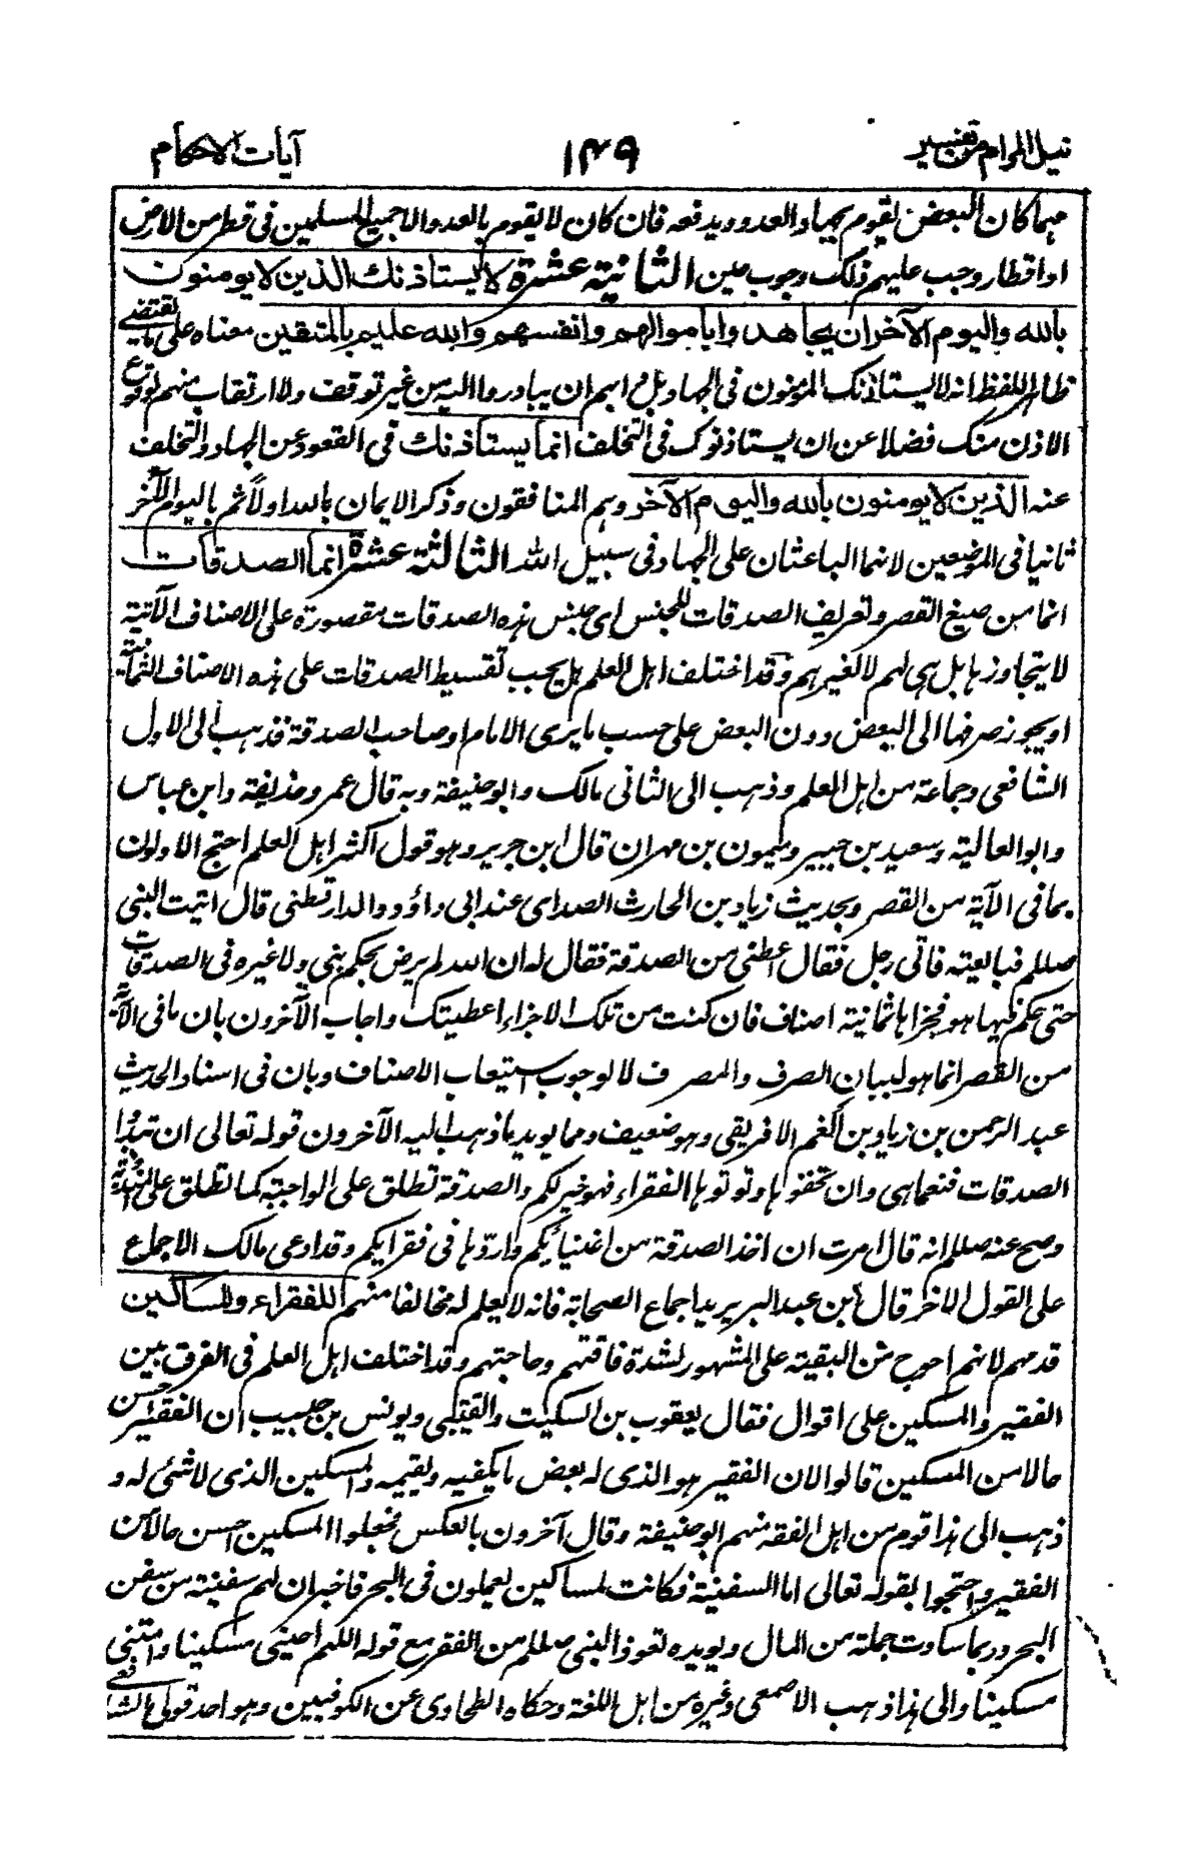 نيل المرام من تفسير ١٤٩ آيات الاحكام
مهما كان البعض يقوم بجهاد العدو ويدفعه فان كان لا يقوم بالعدو الا جميع المسلمين فى قطر من الارض
او اقطار وجب عليهم ذلك وجوب عين الثانية عشرة لا يستاذنك الذين لا يومنون
بالله واليوم الآخر ان يجاهدوا باموالهم وانفسهم والله عليم بالمتقين معناه على ما يقتضيه
ظاهر اللفظ انه لا يستاذنك المؤمنون فى الجهاد بل دابهم ان يبادروا اليه من غير توقف ولا ارتقاب منهم لوقوع
الاذن منك فضلا عن ان يستاذنوك فى التخلف انما يستاذنك فى القعود عن الجهاد والتخلف
عنه الذين لا يومنون بالله واليوم الآخر وهم المنافقون وذكر الايمان بالله اولاً ثم باليوم الآخر
ثانيا فى الموضعين لانهما الباعثان على الجهاد فى سبيل الله الثالثة عشرة انما الصدقات
انما من صيغ القصر وتعريف الصدقات للجنس اى جنس هذه الصدقات مقصورة على الاصناف الآتية
لا يتجاوزها بل هى لهم لا لغيرهم وقد اختلف اهل العلم هل يجب تقسيط الصدقات على هذه الاصناف الثمانية
او يجوز صرفها الى البعض دون البعض على حسب ما يرى الامام او صاحب الصدقة فذهب الى الاول
الشافعى وجماعة من اهل العلم وذهب الى الثانى مالك وابو حنيفة وبه قال عمر وحذيفة وابن عباس
وابو العالية وسعيد بن جبير وميمون بن مهران قال ابن جرير وهو قول اكثر اهل العلم احتج الاولون
بما فى الآية من القصر وبحديث زياد بن الحارث الصداى عند ابى داؤد والدارقطنى قال اتيت النبى
صللم فبايعته فاتى رجل فقال اعطنى من الصدقة فقال له ان الله لم يرض بحكم نبى ولا غيره فى الصدقات
حتى حكم فيها هو فجزاها ثمانية اصناف فان كنت من تلك الاجزاء اعطيتك واجاب الآخرون بان ما فى الآية
من القصر انما هو لبيان الصرف والمصرف لا لوجوب استيعاب الاصناف وبان فى اسناد الحديث
عبد الرحمن بن زياد بن انعم الافريقى وهو ضعيف ومما يويد ما ذهب اليه الآخرون قوله تعالى ان تبدوا
الصدقات فنعما هى وان تخفوها وتوتوها الفقراء فهو خير لكم والصدقة تطلق على الواجبة كما تطلق على المندوبة
وصح عنه صللم انه قال امرت ان اخذ الصدقة من اغنيائكم واردّها فى فقرايكم وقد ادعى مالك الاجماع
على القول الآخر قال ابن عبد البر يريد اجماع الصحابة فانه لا يعلم له مخالفا منهم للفقراء والمساكين
قدمهم لانهم احوج من البقية على المشهور لشدة فاقتهم وحاجتهم وقد اختلف اهل العلم فى الفرق بين
الفقير والمسكين على اقوال فقال يعقوب بن السكيت والقتيبى ويونس بن حبيب ان الفقير احسن
حالا من المسكين قالوا لان الفقير هو الذى له بعض ما يكفيه ويقيمه والمسكين الذى لا شئ له و
ذهب الى هذا قوم من اهل الفقه منهم ابو حنيفة وقال آخرون بالعكس فجعلوا المسكين احسن حالا من
الفقير واحتجوا بقوله تعالى اما السفينة فكانت لمساكين يعملون فى البحر فاخبر ان لهم سفينة من سفن
البحر وربما ساوت جملة من المال ويويده تعوذ النبى صللم من الفقر مع قوله اللهم احينى مسكينا وامتنى
مسكينا والى هذا ذهب الاصمعى وغيره من اهل اللغة وحكاه الطحاوى عن الكوفيين وهو احد قولى الشافعى